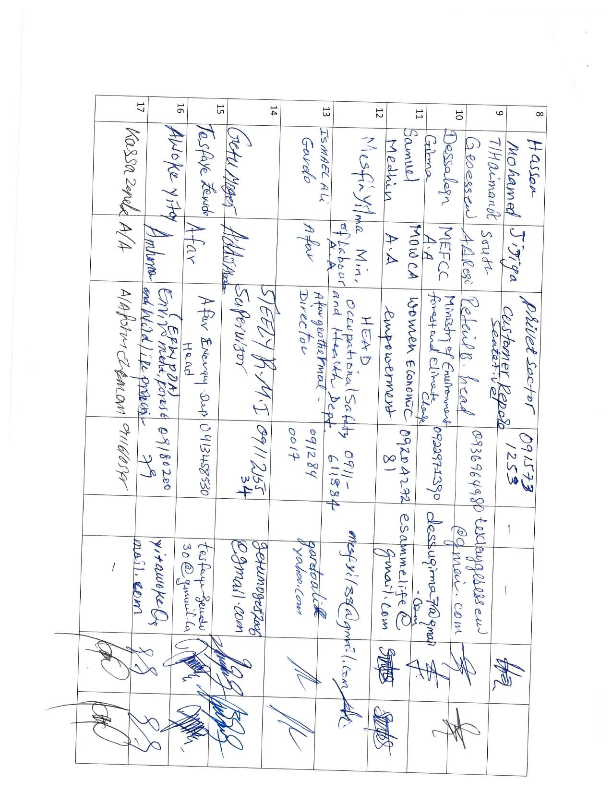 8
Hassen
Mohamed
Jijiga
Privet Sactor
Customer Repre
sentative
091573
1253
-
-
9
T/Haimanot
Gessesew
South
Retail B. head
0936964980
@gmail.com
10
Dessalegn
Girma
MEFCC
A.A
Ministry of Environment
forest and climate
Change
0922971390
dessugima7@gmail
.com
11
Samuel
Medhin
MOWCA
A.A
Women Economic
empowerment
09204272
81
esammelife@
gmail.com
12
Mesfin Yilma
Min.
of Labour
A.A
HEAD
Occupational Safety
and Health Dept.
0911-
611834
mesfyil33@gmail.com
13
ISMAEL ALI
Gardo
Afar
Afar geothermal -
Director
091284
0017
gardoali@
yahoo.com
14
Getu Moges
Addis Ababa
STEELY R.M.I
Supervisor
0911255
34
@gmail.com
15
Tesfaye Zewdu
Afar
Afar Energy
Head
0913458550
30@gmail.co
16
Awoke Yitay
Amhara
(EFWPDA)
Enviro mental, forest
and wild life
09180200
79
yitawoke@g
mail.com
17
Kassa Zenebe
A/A
-